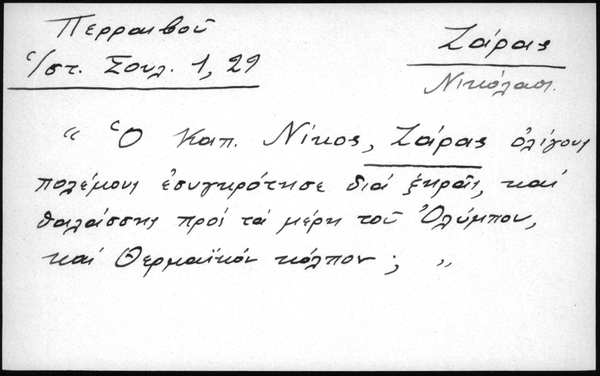 Περραιβοῦ
Ἱστ. Σουλ. 1, 29
Ζάρας
Νικόλαος.
" Ὁ Καπ. Νίκος, Ζάρας ὀλίγους
πολέμους ἐσυγκρότησε διά ξηρᾶς, καί
θαλάσσης πρός τά μέρη τοῦ Ὀλύμπου,
καί Θερμαϊκόν κόλπον ; "